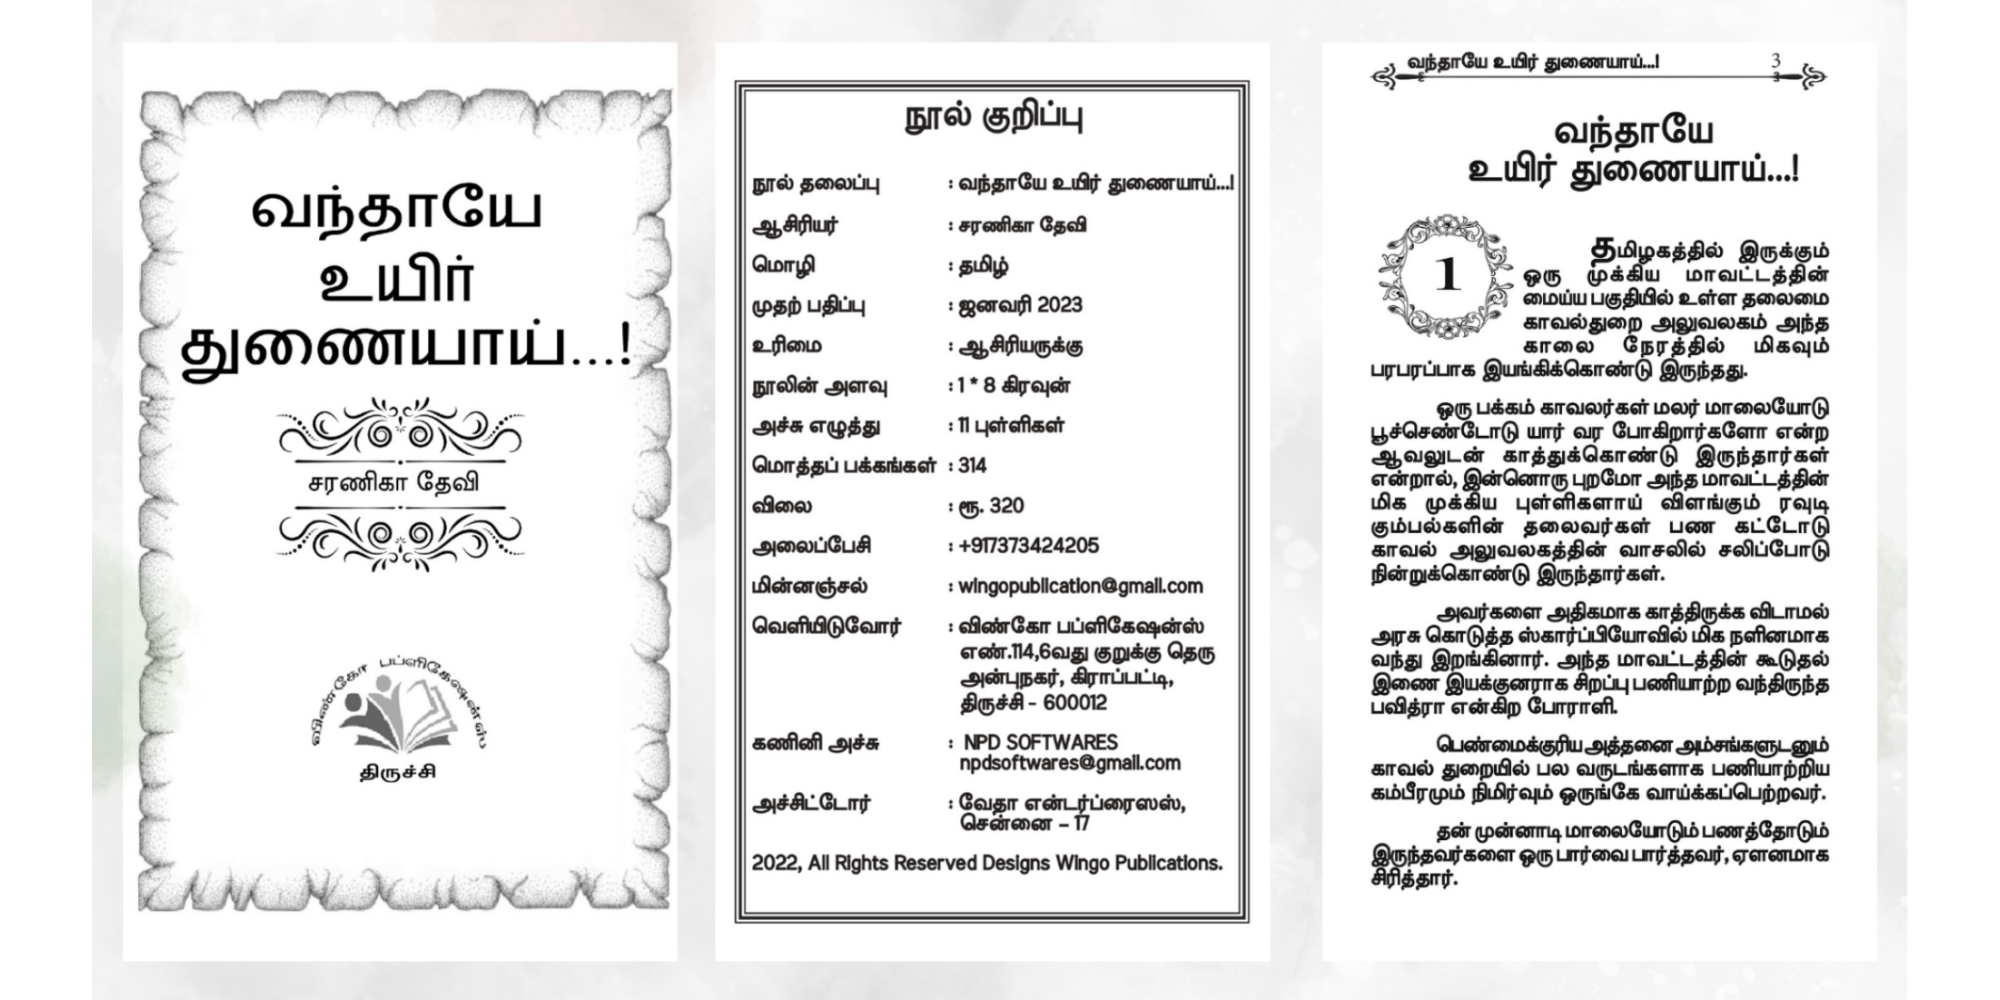 வந்தாயே
உயிர்
துணையாய்...!
சரணிகா தேவி
விண்கோ பப்ளிகேஷன்ஸ்
திருச்சி
நூல் குறிப்பு
நூல் தலைப்பு : வந்தாயே உயிர் துணையாய்...!
ஆசிரியர் : சரணிகா தேவி
மொழி : தமிழ்
முதற் பதிப்பு : ஜனவரி 2023
உரிமை : ஆசிரியருக்கு
நூலின் அளவு : 1 * 8 கிரவுன்
அச்சு எழுத்து : 11 புள்ளிகள்
மொத்தப் பக்கங்கள் : 314
விலை : ரூ. 320
அலைப்பேசி : +917373424205
மின்னஞ்சல் : wingopublication@gmail.com
வெளியிடுவோர் : விண்கோ பப்ளிகேஷன்ஸ்
எண்.114,6வது குறுக்கு தெரு
அன்புநகர், கிராப்பட்டி,
திருச்சி - 600012
கணினி அச்சு : NPD SOFTWARES
npdsoftwares@gmail.com
அச்சிட்டோர் : வேதா என்டர்ப்ரைஸஸ்,
சென்னை – 17
2022, All Rights Reserved Designs Wingo Publications.
வந்தாயே உயிர் துணையாய்...! 3
வந்தாயே
உயிர் துணையாய்...!
1
தமிழகத்தில் இருக்கும்
ஒரு முக்கிய மாவட்டத்தின்
மைய்ய பகுதியில் உள்ள தலைமை
காவல்துறை அலுவலகம் அந்த
காலை நேரத்தில் மிகவும்
பரபரப்பாக இயங்கிக்கொண்டு இருந்தது.
ஒரு பக்கம் காவலர்கள் மலர் மாலையோடு
பூச்செண்டோடு யார் வர போகிறார்களோ என்ற
ஆவலுடன் காத்துக்கொண்டு இருந்தார்கள்
என்றால், இன்னொரு புறமோ அந்த மாவட்டத்தின்
மிக முக்கிய புள்ளிகளாய் விளங்கும் ரவுடி
கும்பல்களின் தலைவர்கள் பண கட்டோடு
காவல் அலுவலகத்தின் வாசலில் சலிப்போடு
நின்றுக்கொண்டு இருந்தார்கள்.
அவர்களை அதிகமாக காத்திருக்க விடாமல்
அரசு கொடுத்த ஸ்கார்ப்பியோவில் மிக நளினமாக
வந்து இறங்கினார். அந்த மாவட்டத்தின் கூடுதல்
இணை இயக்குனராக சிறப்பு பணியாற்ற வந்திருந்த
பவித்ரா என்கிற போராளி.
பெண்மைக்குரிய அத்தனை அம்சங்களுடனும்
காவல் துறையில் பல வருடங்களாக பணியாற்றிய
கம்பீரமும் நிமிர்வும் ஒருங்கே வாய்க்கப்பெற்றவர்.
தன் முன்னாடி மாலையோடும் பணத்தோடும்
இருந்தவர்களை ஒரு பார்வை பார்த்தவர், ஏளனமாக
சிரித்தார்.